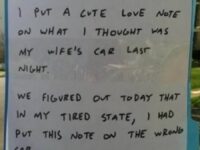 I PUT A CUTE LOVE NOTE
ON WHAT I THOUGHT WAS
MY WIFE'S CAR LAST
NIGHT.
WE FIGURED OUT TODAY THAT
IN MY TIRED STATE, I HAD
PUT THIS NOTE ON THE WRONG
CAR